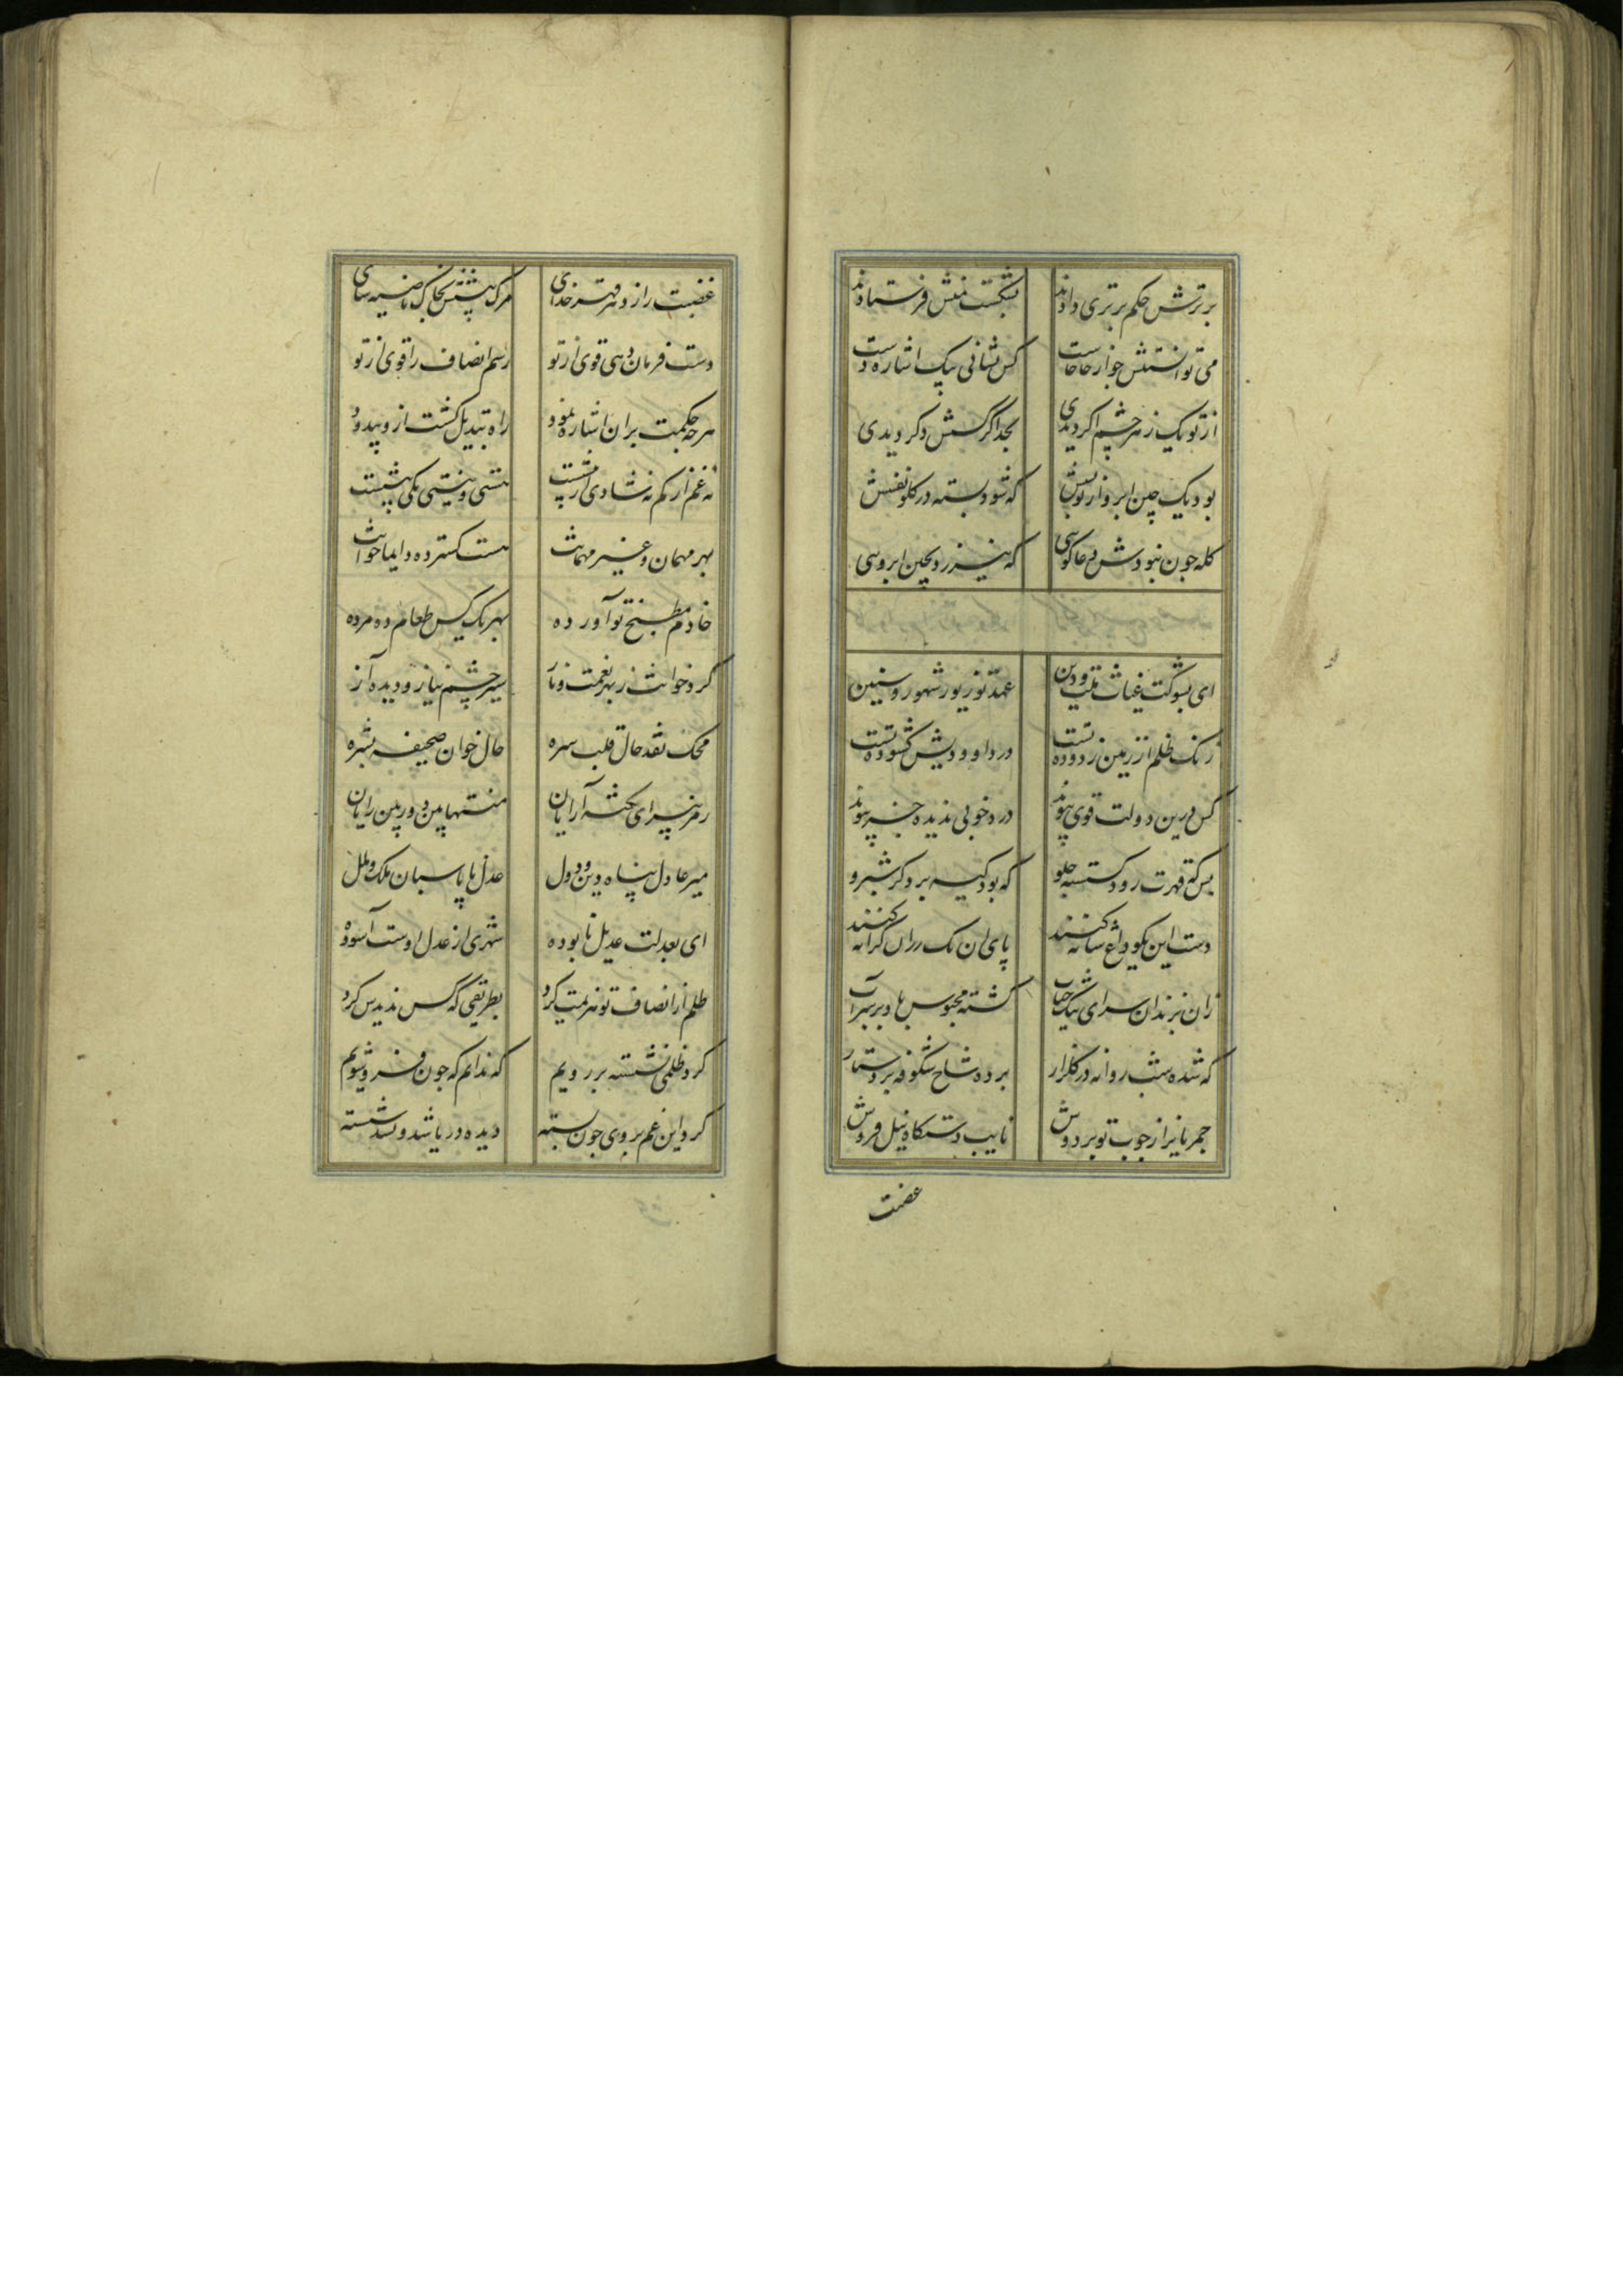 برترش حکم برتری دادند بشکست منش فرستادند
می توانستنش جواز حاجات کس نشانی بیک اشاره دست
از تو یک زهر چشم اگر دیدی بخدا گر کسش دگر دیدی
بود یک چین ابرو از تو بسش که شود بسته در گلو نفسش
گله چون نبودش دعاگویی که نیرزد بچین ابرویی
ای بشوکت غیاث ملت و دین عهد تو زیور شهور و سنین
زنک ظلم از زمین زدوده تست در داد و دهش گشوده تست
کس درین دولت قوی پیوند در خوبی ندیده جز پیوند
بس که قهرت رود گسسته جلو که بود کیسه بر دگر شبرو
دست این نکو داغ شانه کنند پای آن یک کرانه کنند
زان بزندان سرای حباب گشته محبوس باد بر سر آب
که شده شب روانه در گلزار برده شاخ شکوفه بر دستار
خمر تایر از چوب تو بر دوش نایب دستکاه نیل فروش
غضبت
غضبت راز دهر قهر خدای مرک پیشش بخاک ناصیه سای
دست فرمان دهی قوی از تو رسم انصاف را قوی از تو
هر چه حکمت بران اشاره نمود راه تبدیل گشت ازو پدرود
نه غم از کم نه شادی از بیشت هستی و نیستی یکی پیشت
بهر مهمان و غیر مهمانت هست گسترده دایما خوانت
خادم مطبخ تو آورده بهر یک کس طعام ده مرده
کرد خوانت زبهر نعمت و ناز سیر چشم نیاز و دیده آز
محک نقد حال قلب سره حال خوان صحیفه بشره
رمز پیرای نکته آرایان منتها بین دوربین رایان
میر عادل پناه دین و دول عدل با پاسبان ملک و ملل
ای بعدلت عدیل نابوده شهری از عدل اوست آسوده
ظلم از انصاف تو هزیمت کرد بطریقی که کس ندیدش کرد
کرد ظلمی نشسته بر رویم که ندانم که چون فرو شویم
کرد این غم بروی چون بسته دیده دریا شد و نشد شسته